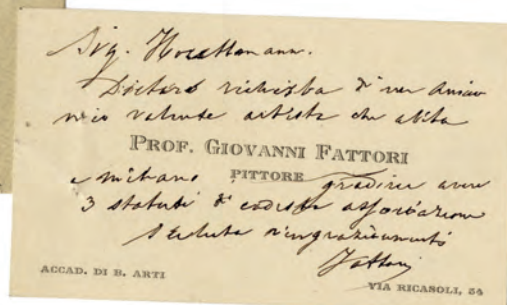 Sig.
Dietro richiesta di un amico
mio valente artista che abita
PROF. GIOVANNI FATTORI
PITTORE
a milano gradirei avere
3 statuti di codesta associazione
Saluti ringraziamenti
Fattori
ACCAD. DI B. ARTI
VIA RICASOLI, 54